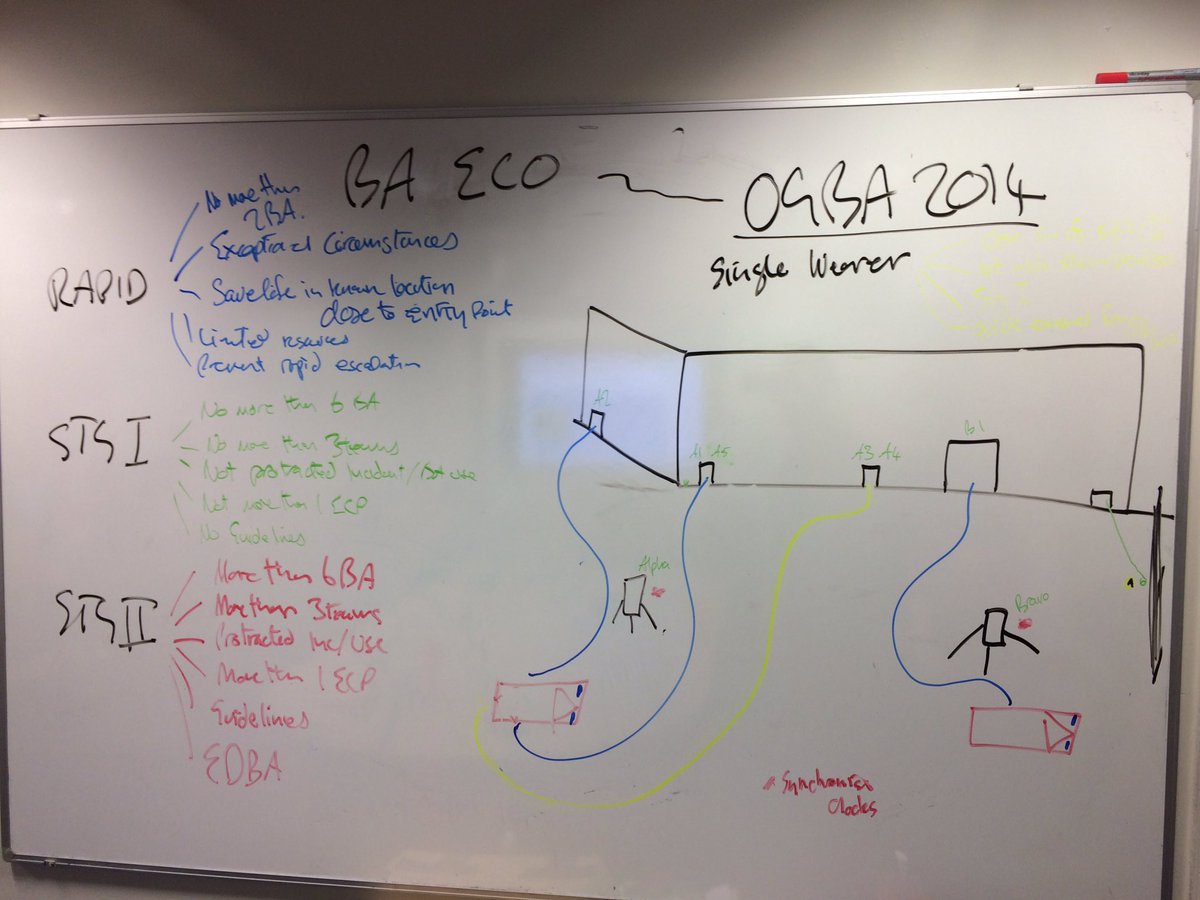 BA ECO
OGBA 2014
Single Wearer
RAPID
No more than
2BA.
Exceptional Circumstances
Save life in known location
close to Entry Point
Limited resources
Prevent rapid escalation
STG I
No more than 6 BA
No more than 3 teams
Not protracted Incident/BA use
Not more than 1 ECP
No Guidelines
STG II
More than 6BA
More than 3 teams
Protracted Inc/Use
More than 1 ECP
Guidelines
EDBA
A2
A1 A5
A3 A4
B1
Alpha
Bravo
* Synchronise
Clocks